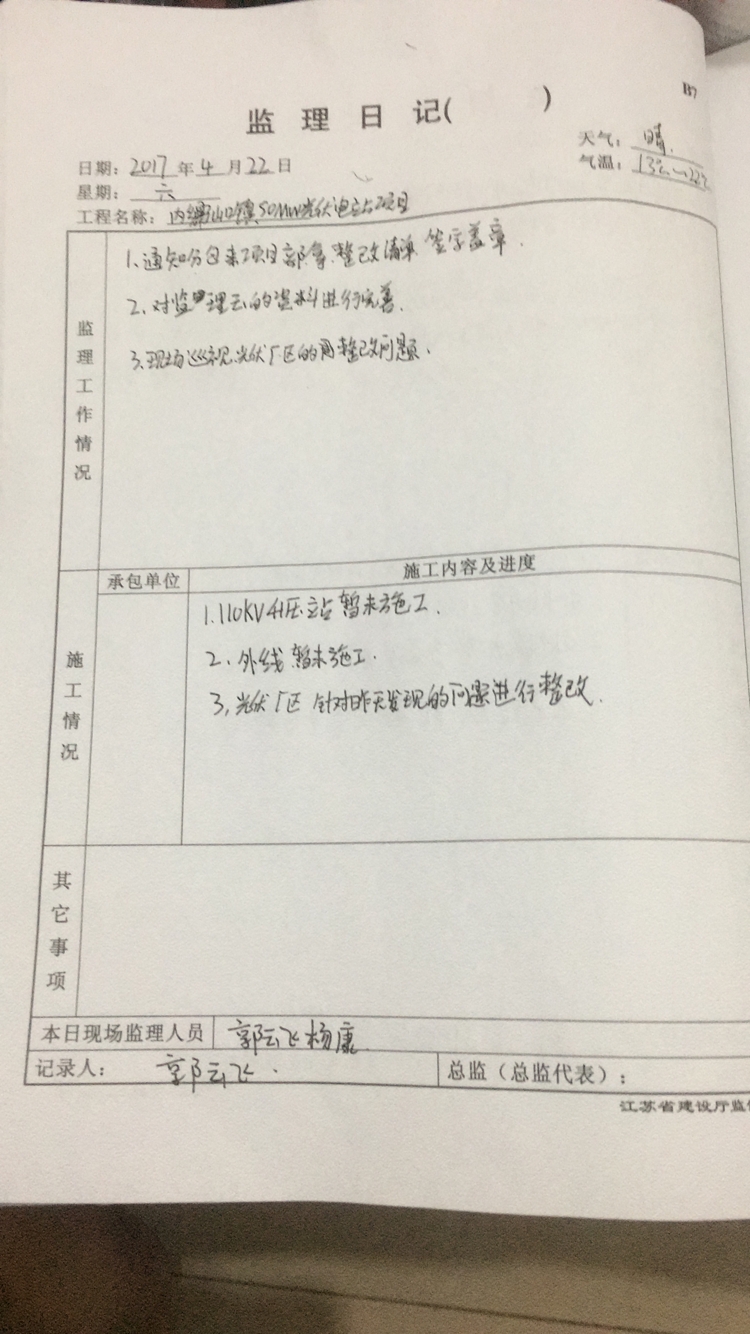 B7
监理日记( )
天气：晴.
日期：2017年4月22日
气温：13℃~22℃
星期：六
工程名称：山口镇50MW光伏电站项目
监理工作情况
1.通知分包来项目部拿整改清单签字盖章.
2.对监理的资料进行完善.
3.现场巡视光伏厂区的整改问题.
施工情况
承包单位 施工内容及进度
1.110KV升压站暂未施工.
2.外线暂未施工.
3,光伏厂区针对昨天发现的问题进行整改.
其它事项
本日现场监理人员 郭云飞 杨康
记录人： 郭云飞.
总监（总监代表）：
江苏省建设厅监